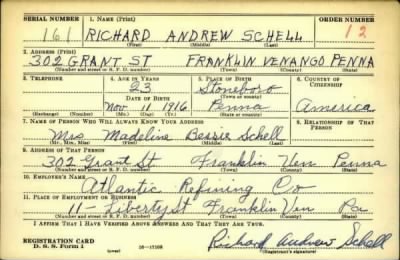 SERIAL NUMBER 1. NAME (Print) ORDER NUMBER
161 RICHARD ANDREW SCHELL 12
(First) (Middle) (Last)
2. ADDRESS (Print)
302 GRANT ST FRANKLIN VENANGO PENNA
(Number and street or R. F. D. number) (Town) (County) (State)
3. TELEPHONE 4. AGE IN YEARS 5. PLACE OF BIRTH 6. COUNTRY OF CITIZENSHIP
23 Stoneboro
DATE OF BIRTH (Town or county)
Nov 11 1916 Penna America
(Exchange) (Number) (Mo.) (Day) (Yr.) (State or country)
7. NAME OF PERSON WHO WILL ALWAYS KNOW YOUR ADDRESS 8. RELATIONSHIP OF THAT PERSON
Mrs Madeline Bessie Schell
(Mr., Mrs., Miss) (First) (Middle) (Last)
9. ADDRESS OF THAT PERSON
302 Grant St Franklin Ven Penna
(Number and street or R. F. D. number) (Town) (County) (State)
10. EMPLOYER'S NAME
Atlantic Refining Co
11. PLACE OF EMPLOYMENT OR BUSINESS
11 - Liberty St Franklin Ven Pa
(Number and street or R. F. D. number) (Town) (County) (State)
I AFFIRM THAT I HAVE VERIFIED ABOVE ANSWERS AND THAT THEY ARE TRUE.
REGISTRATION CARD
D. S. S. Form 1 (over) 16-17105 Richard Andrew Schell
(Registrant's signature)